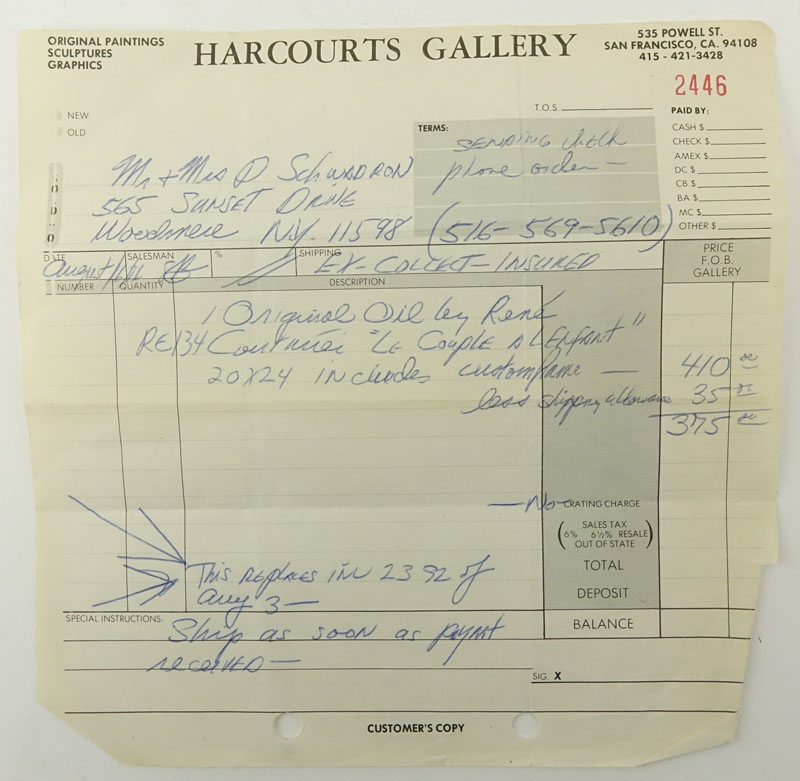 ORIGINAL PAINTINGS
SCULPTURES
GRAPHICS
HARCOURTS GALLERY
535 POWELL ST.
SAN FRANCISCO, CA. 94108
415 - 421-3428
2446
T.O.S.
PAID BY:
NEW
OLD
TERMS:
SENDING check
phone order —
CASH $
CHECK $
AMEX $
DC $
CB $
BA $
MC $
OTHER $
Mr + Mrs D SCHWADRON
565 SUNSET DRIVE
Woodmere NY. 11598 (516-569-5610)
DATE
SALESMAN
%
SHIPPING
EX-COLLECT-INSURED
PRICE
F.O.B.
GALLERY
August
NUMBER
QUANTITY
DESCRIPTION
1 Original Oil by René
RE134 "Le Couple A L'Enfant"
20X24 Includes custom frame — 410 00
less shipping allowance 35 00
375 00
—No— CRATING CHARGE
( SALES TAX
6% 6½% RESALE
OUT OF STATE )
TOTAL
This replaces INV 2392 of
Aug 3—
DEPOSIT
SPECIAL INSTRUCTIONS:
BALANCE
Ship as soon as paymt
received—
SIG. X
CUSTOMER'S COPY